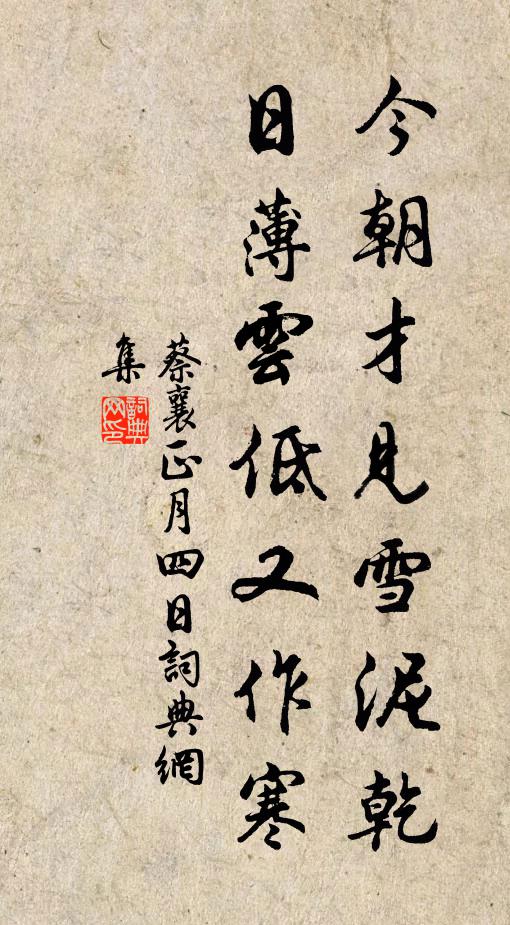 今朝才見雪泥乾
日薄雲低又作寒
蔡襄正月四日詞典網
集
詞典网印